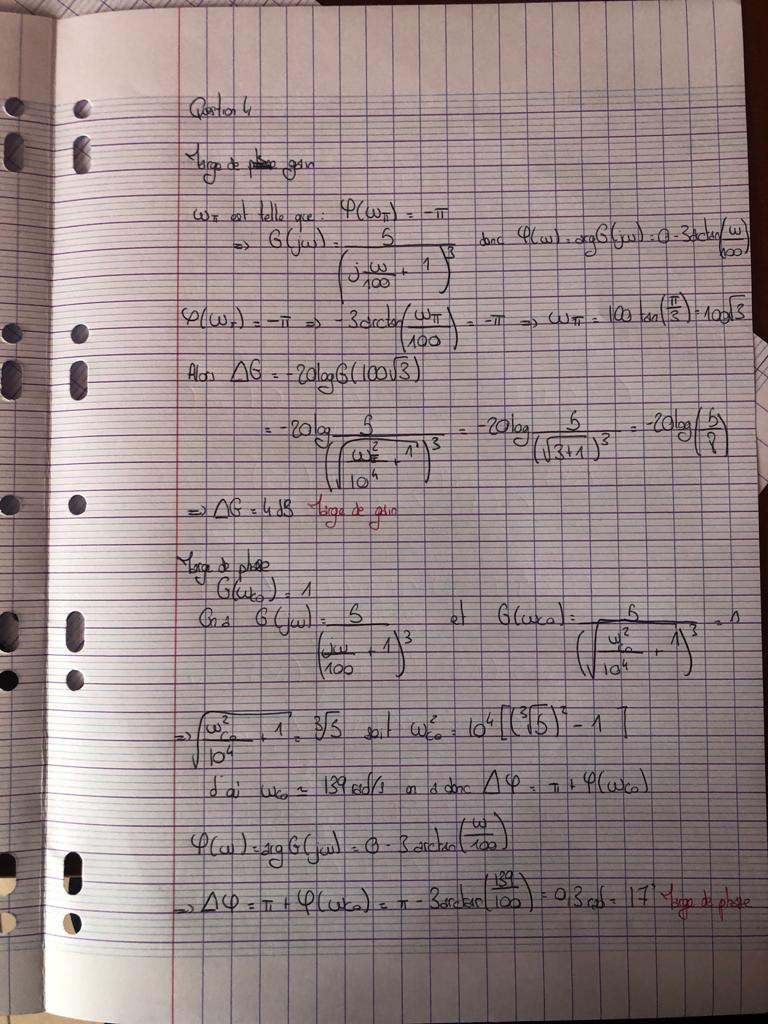 Question 4
Marge de gain
ω_π est telle que : φ(ω_π) = -π
=> G(jω) = 5 / (j ω/100 + 1)^3 donc φ(ω) = arg G(jω) = 0 - 3 arctan(ω/100)
φ(ω_π) = -π => -3 arctan(ω_π/100) = -π => ω_π = 100 tan(π/3) = 100√3
Alors ΔG = -20 log G(100√3)
= -20 log 5 / (√(ω_π²/10⁴ + 1))^3 = -20 log 5 / (√(3+1))^3 = -20 log(5/8)
=> ΔG = 4 dB Marge de gain
Marge de phase
G(ω_co) = 1
On a G(jω) = 5 / (jω/100 + 1)^3 et G(ω_co) = 5 / (√(ω_co²/10⁴ + 1))^3 = 1
=> √(ω_co²/10⁴ + 1) = ∛5 soit ω_co² = 10⁴ [(∛5)² - 1]
d'où ω_co ≈ 139 rad/s on a donc Δφ = π + φ(ω_co)
φ(ω) = arg G(jω) = 0 - 3 arctan(ω/100)
=> Δφ = π + φ(ω_co) = π - 3 arctan(139/100) = 0,3 rad = 17° Marge de phase